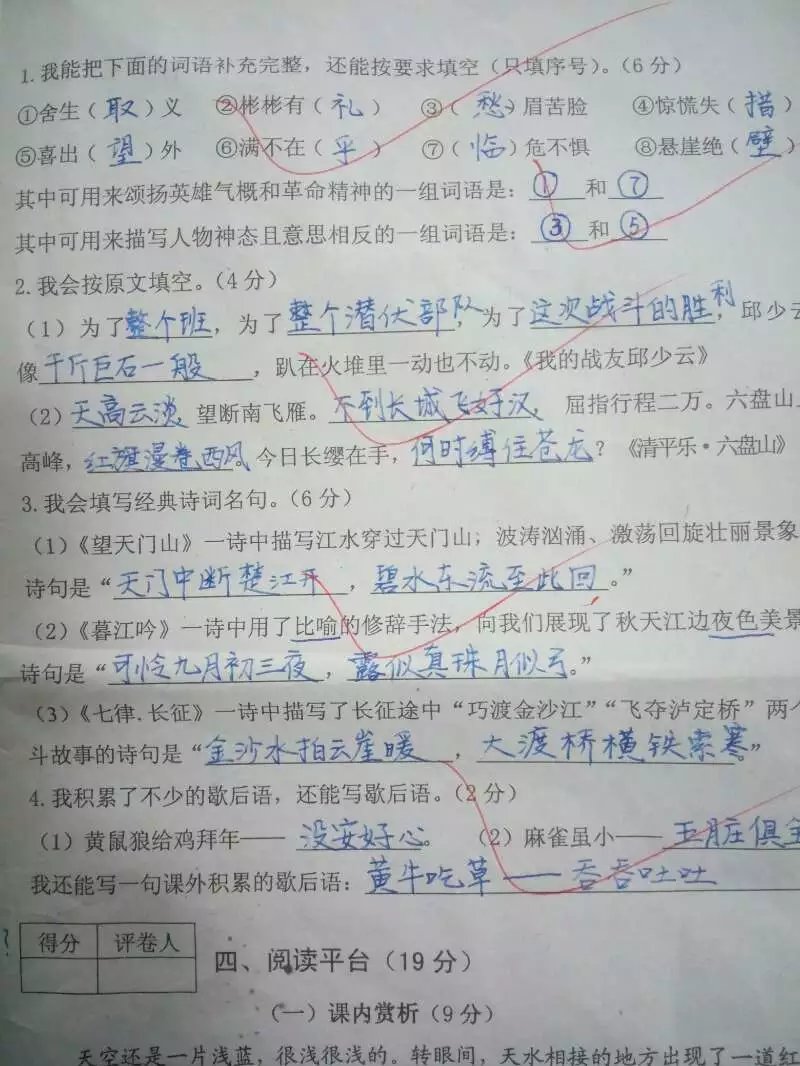 1.我能把下面的词语补充完整，还能按要求填空（只填序号）。（6分）
①舍生（取）义 ②彬彬有（礼） ③（愁）眉苦脸 ④惊慌失（措
⑤喜出（望）外 ⑥满不在（乎） ⑦（临）危不惧 ⑧悬崖绝（壁
其中可用来颂扬英雄气概和革命精神的一组词语是：①和⑦
其中可用来描写人物神态且意思相反的一组词语是：③和⑤
2.我会按原文填空。（4分）
（1）为了整个班，为了整个潜伏部队，为了这次战斗的胜利，邱少云
像千斤巨石一般，趴在火堆里一动也不动。《我的战友邱少云》
（2）天高云淡，望断南飞雁。不到长城飞好汉，屈指行程二万。六盘山
高峰，红旗漫卷西风。今日长缨在手，何时缚住苍龙？《清平乐·六盘山》
3.我会填写经典诗词名句。（6分）
（1）《望天门山》一诗中描写江水穿过天门山；波涛汹涌、激荡回旋壮丽景象
诗句是“天门中断楚江开，碧水东流至此回。”
（2）《暮江吟》一诗中用了比喻的修辞手法，向我们展现了秋天江边夜色美景
诗句是“可怜九月初三夜，露似真珠月似弓。”
（3）《七律.长征》一诗中描写了长征途中“巧渡金沙江”“飞夺泸定桥”两个
斗故事的诗句是“金沙水拍云崖暖，大渡桥横铁索寒。”
4.我积累了不少的歇后语，还能写歇后语。（2分）
（1）黄鼠狼给鸡拜年——没安好心。 （2）麻雀虽小——五脏俱全
我还能写一句课外积累的歇后语：黄牛吃草——吞吞吐吐
得分 评卷人
四、阅读平台（19分）
（一）课内赏析（9分）
天空还是一片浅蓝，很浅很浅的。转眼间，天水相接的地方出现了一道红